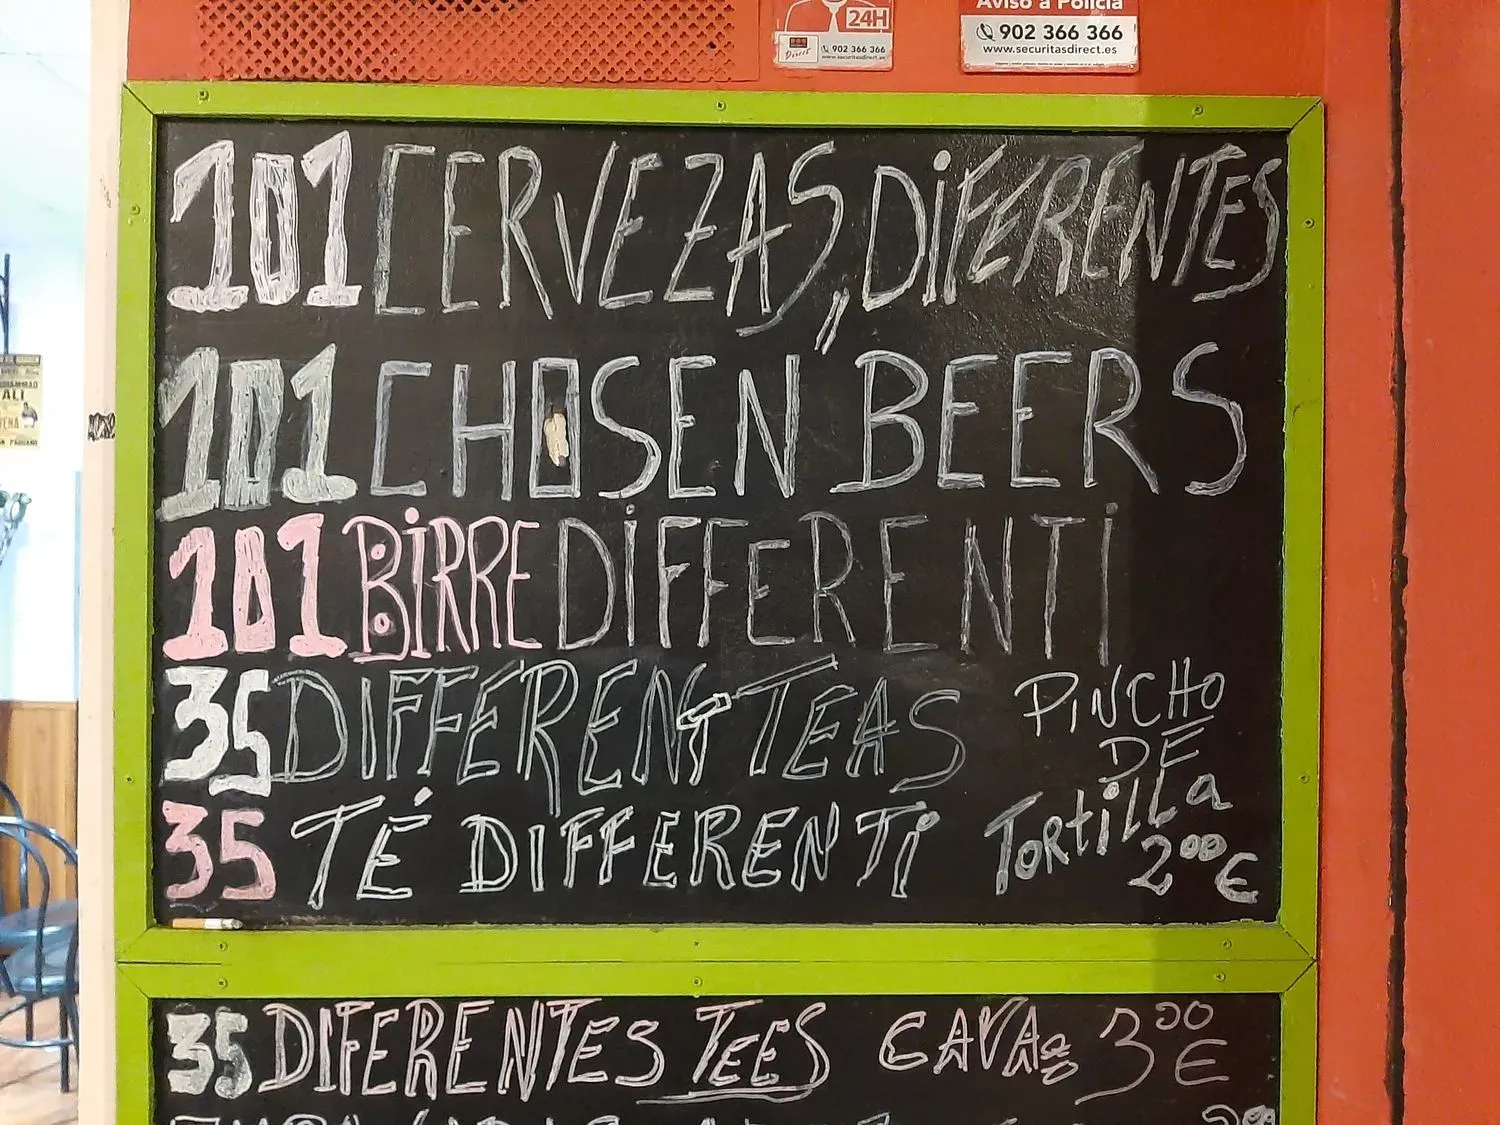 24H
902 366 366
www.securitasdirect.es
Aviso a Policía
902 366 366
www.securitasdirect.es
ALI
101 CERVEZAS, DIFERENTES
101 CHOSEN BEERS
101 BIRRE DIFFERENTI
35 DIFFÉRENT TEAS
PINCHO
DE
TORTiLLa
2⁰⁰ €
35 TÉ DIFFERENTi
35 DIFERENTES TEES CAVA 3⁰⁰ €